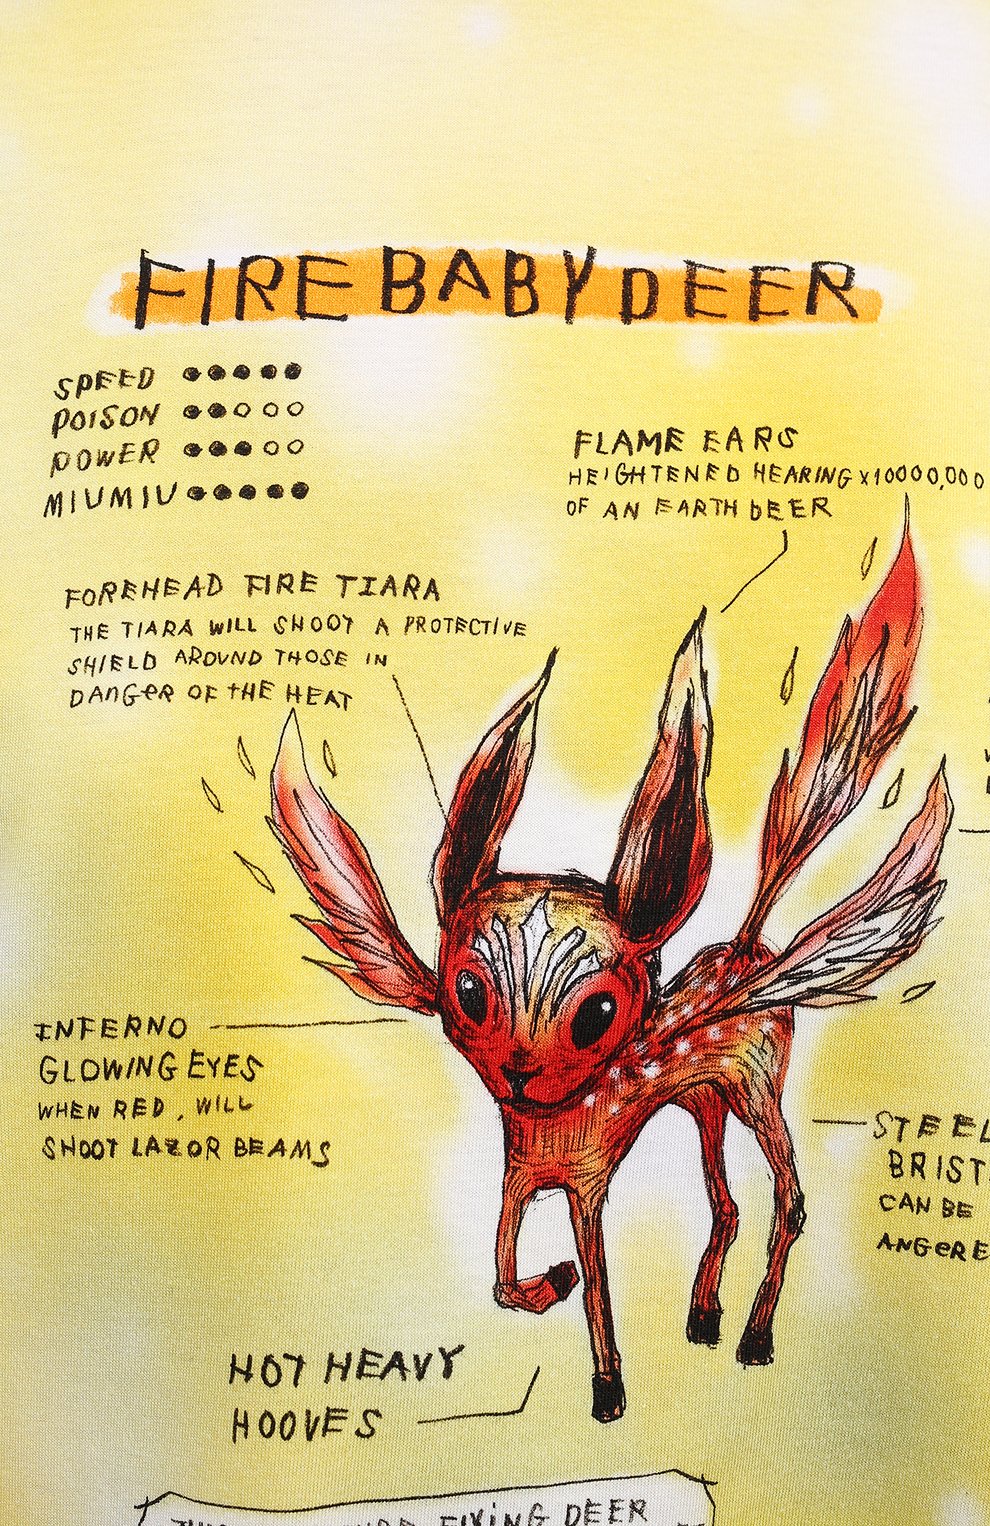 FIRE BABY DEER
SPEED
POISON
POWER
MIUMIU
FLAME EARS
HEIGHTENED HEARING x10000,000
OF AN EARTH DEER
FOREHEAD FIRE TIARA
THE TIARA WILL SHOOT A PROTECTIVE
SHIELD AROUND THOSE IN
DANGER OF THE HEAT
INFERNO
GLOWING EYES
WHEN RED, WILL
SHOOT LAZOR BEAMS
STEEL
BRIST
CAN BE
ANGERE
HOT HEAVY
HOOVES
DEER